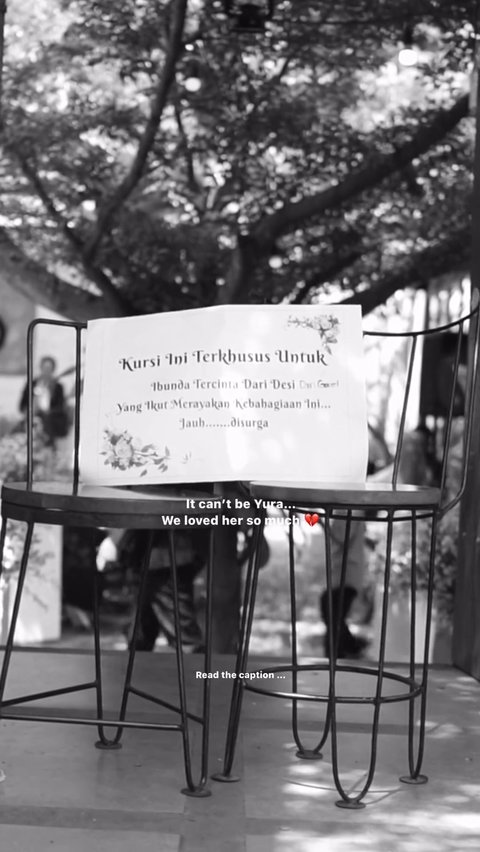 Kursi Ini Terkhusus Untuk
Ibunda Tercinta Dari Desi
Yang Ikut Merayakan Kebahagiaan Ini...
Jauh.......disurga
It can’t be Yura...
We loved her so much 💔
Read the caption ...